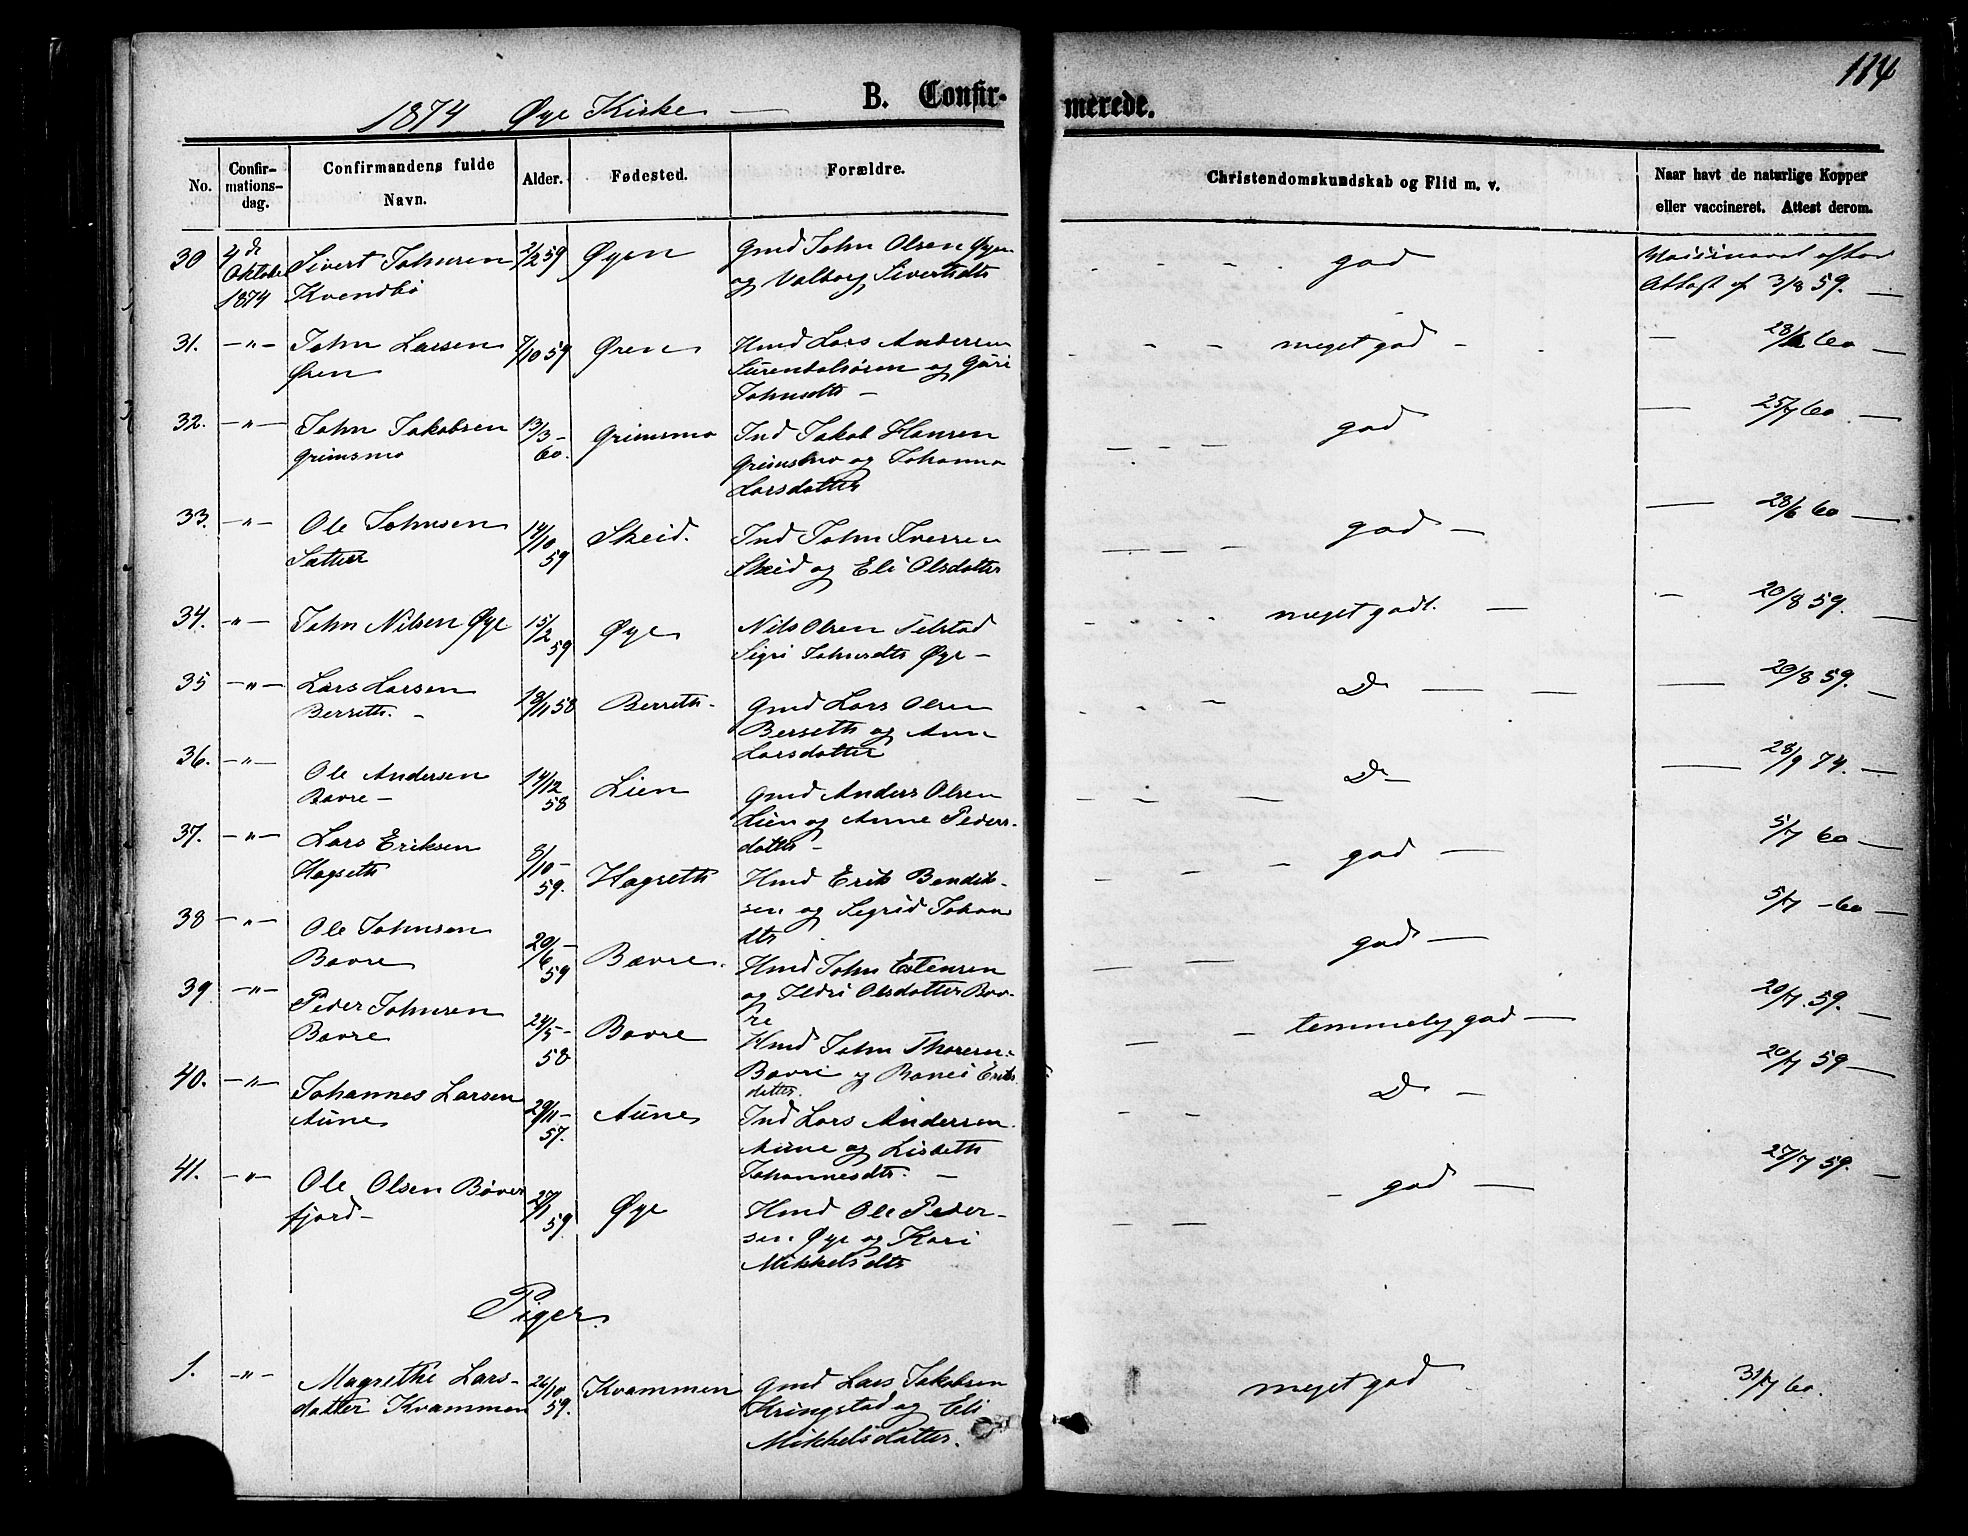 114
1874 Øye Kirke
B. Confir-
merede.
No.
Confir-
mations-
dag.
Confirmandens fulde
Navn.
Alder.
Fødested.
Forældre.
Christendomskundskab og Flid m. v.
Naar havt de naturlige Kopper
eller vaccineret. Attest derom.
30
4de
Oktober
1874
Sivert Johnsen
Kvendbø
2/2 59
Øyen
Gmd John Olsen Øyen
og Valborg Sivertsdtr
god
Vaccineret efter
Attest af 3/8 59.
31. -"-
John Larsen
Øren
7/10 59
Øren
Hmd Lars Andersen
Surendalsøren og Guri
Johnsdtr
meget god
60
32. -"-
John Jakobsen
Grimsmo
13/3-
60.
Grimsmo
Ind Jakob Hansen
Grimsmo og Johanna
Larsdatter
god
25/7 60
33. -"-
Ole Johnsen
Sætter
14/10
59
Skeid.
Ind John Iversen
Skeid og Eli Olsdatter
god
28/6 60
34. -"-
John Nilsen Øye
15/2
59
Øye
Nils Olsen Telstad
Sigri Johnsdtr Øye
meget god.
20/8 59.
35 -"-
Lars Larsen
Berseth.
18/11 58
Berseth.
Gmd Lars Olsen
Berseth og Ane
Larsdatter
Do
20/8 59.
36. -"-
Ole Andersen
Bævre
14/12
58
Lien
Gmd Anders Olsen
Lien og Anne Peders-
datter
Do
28/9 74.
37. -"-
Lars Eriksen
Hagseth
8/10-
59.
Hagseth
Hmd Erik Bendik-
sen og Segrid Johan
dtr
god
5/7 60
38 -"-
Ole Johnsen
Bævre
20/6-
59
Bævre.
Hmd John Estensen
og Ildri Olsdatter Bæv-
re
god
5/7 - 60
39. -"-
Peder Johnsen
Bævre
24/5-
58
Bævre
Hmd John Thoresen
Bævre og Eriks
datter.
temmelig god
20/7. 59.
40. -"-
Johannes Larsen
Aune
29/11-
57.
Aune
Ind Lars Andersen
Aune og Lisbeth
Johannesdtr.
Do
20/7 59
41. -"-
Ole Olsen Bæver
fjord
59.
Øye
Hmd Ole Peder-
sen Øye og Kari
Mikkelsdtr
god
27/7 59.
Piger.
1. -"-
Magrethe Lars-
datter Kvammen
26/10
59.
Kvammen
Gmd Lars Jakobsen
Kringstad og Eli
Mikkelsdatter.
meget god
31/7 60.